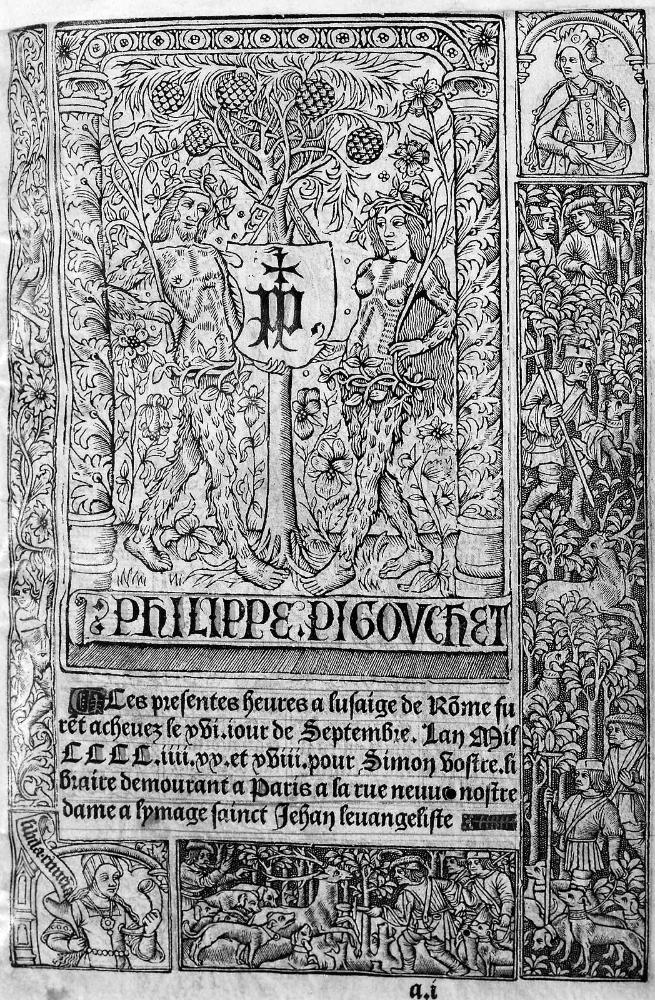 PHILIPPE.PIGOVCHET
Les presentes heures a lusaige de Rõme fu
rẽt acheuez le xvi.iour de Septembre. Lan Mil
CCCC.iiii.xx.et xviii.pour Simon Vostre.li
braire demourant a Paris a la rue neuue nostre
dame a lymage sainct Jehan leuangeliste
a.i